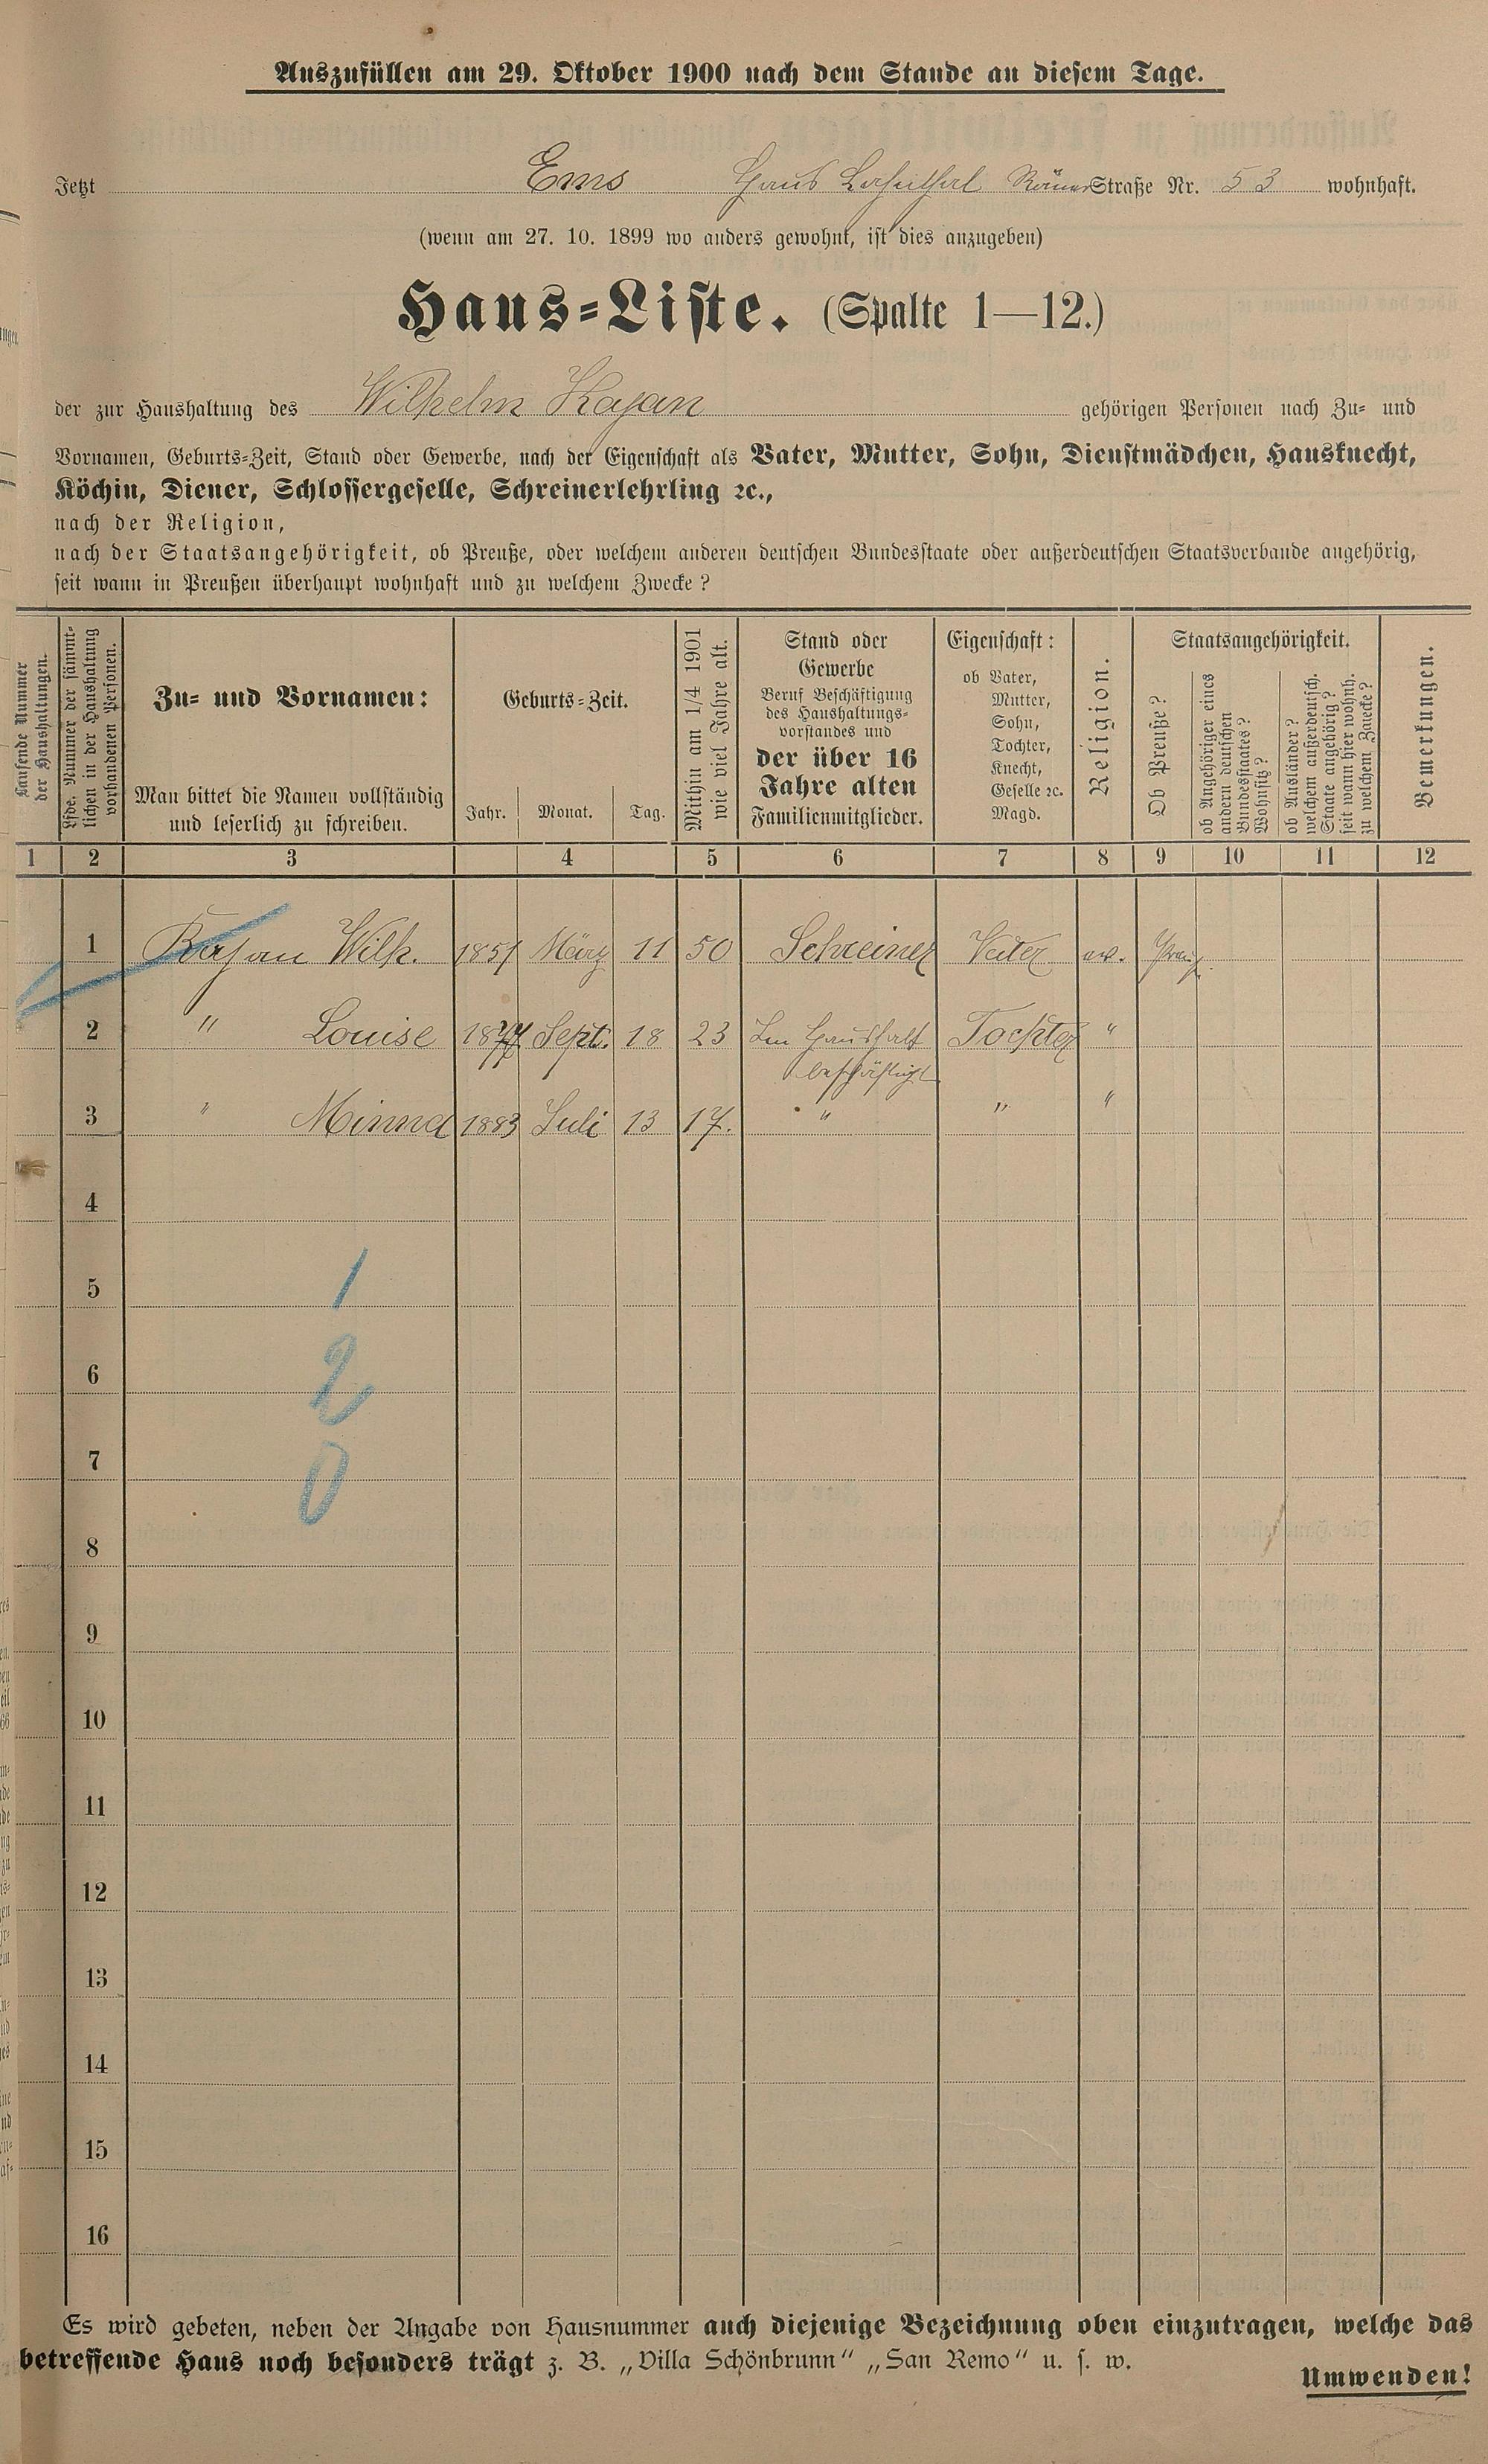 Auszufüllen am 29. Oktober 1900 nach dem Stande an diesem Tage.
Jetzt Ems Haus Lahnthal Römer Straße Nr. 53 wohnhaft.
(wenn am 27. 10. 1899 wo anders gewohnt, ist dies anzugeben)
Haus-Liste. (Spalte 1—12.)
der zur Haushaltung des Wilhelm Kajan gehörigen Personen nach Zu- und
Vornamen, Geburts-Zeit, Stand oder Gewerbe, nach der Eigenschaft als Vater, Mutter, Sohn, Dienstmädchen, Hausknecht,
Köchin, Diener, Schlossergeselle, Schreinerlehrling ꝛc.,
nach der Religion,
nach der Staatsangehörigkeit, ob Preuße, oder welchem anderen deutschen Bundesstaate oder außerdeutschen Staatsverbande angehörig,
seit wann in Preußen überhaupt wohnhaft und zu welchem Zwecke?
Laufende Nummer
der Haushaltungen.
Lfde. Nummer der sämmt-
lichen in der Haushaltung
vorhandenen Personen.
Zu- und Vornamen:
Man bittet die Namen vollständig
und leserlich zu schreiben.
Geburts-Zeit.
Jahr. Monat. Tag.
Mithin am 1/4 1901
wie viel Jahre alt.
Stand oder
Gewerbe
Beruf Beschäftigung
des Haushaltungs-
vorstandes und
der über 16
Jahre alten
Familienmitglieder.
Eigenschaft:
ob Vater,
Mutter,
Sohn,
Tochter,
Knecht,
Geselle ꝛc.
Magd.
Religion.
Staatsangehörigkeit.
Ob Preuße?
ob Angehöriger eines
andern deutschen
Bundesstaates?
Wohnsitz?
ob Ausländer?
welchem außerdeutsch.
Staate angehörig?
seit wann hier wohnh.
zu welchem Zwecke?
Bemerkungen.
1 2 3 4 5 6 7 8 9 10 11 12
1 Kajan Wilh. 1851 März 11 50 Schreiner Vater ev. Preuß.
2 " Louise 1877 Sept. 18 23 Im Haushalt Tochter "
beschäftigt
3 " Minna 1883 Juli 13 17. " " "
4
5 1
6 2
7 0
8
9
10
11
12
13
14
15
16
Es wird gebeten, neben der Angabe von Hausnummer auch diejenige Bezeichnung oben einzutragen, welche das
betreffende Haus noch besonders trägt z. B. „Villa Schönbrunn" „San Remo" u. s. w.
Umwenden!